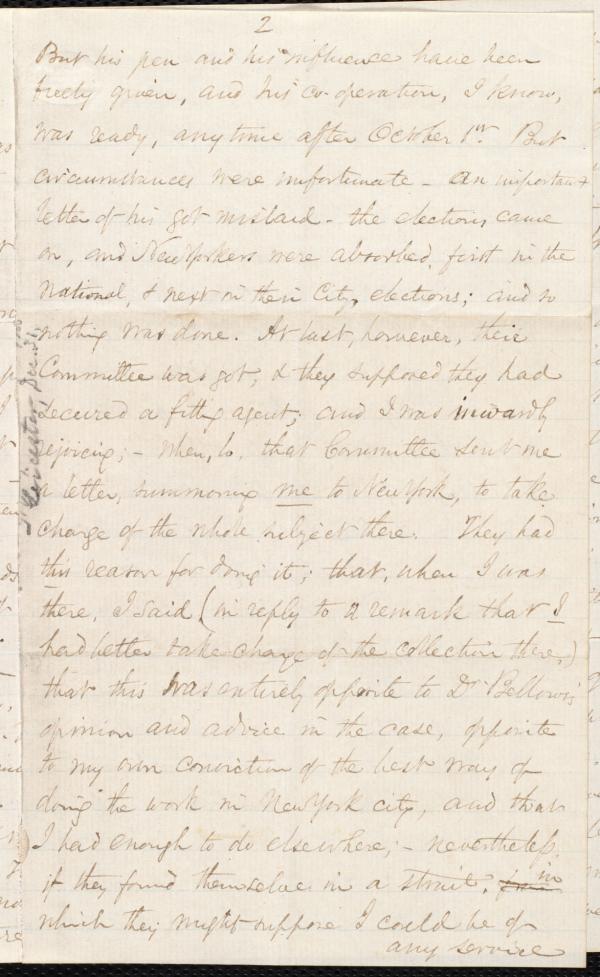 2
But his pen and his influence have been
freely given, and his co-operation, I know,
was ready, anytime after October 1st. But
circumstances were unfortunate - an important
letter of his got mislaid - the elections came
on, and New Yorkers were absorbed, first in the
National, & next in their City, elections; and so
nothing was done. At last, however, their
Committee was got, & they supposed they had
secured a fitting agent; and I was inwardly
rejoicing; - when, lo, that Committee sent me
a letter, summoning me to New York, to take
charge of the whole subject there. They had
this reason for doing it; that, when I was
there, I said (in reply to a remark that I
had better take charge of the collection there,)
that this was entirely opposite to Dr Bellows's
opinion and advice in the case, opposite
to my own conviction of the best way of
doing the work in New York city, and that
I had enough to do elsewhere; - nevertheless,
if they found themselves in a strait, in
which they might suppose I could be of
any service
Leicester